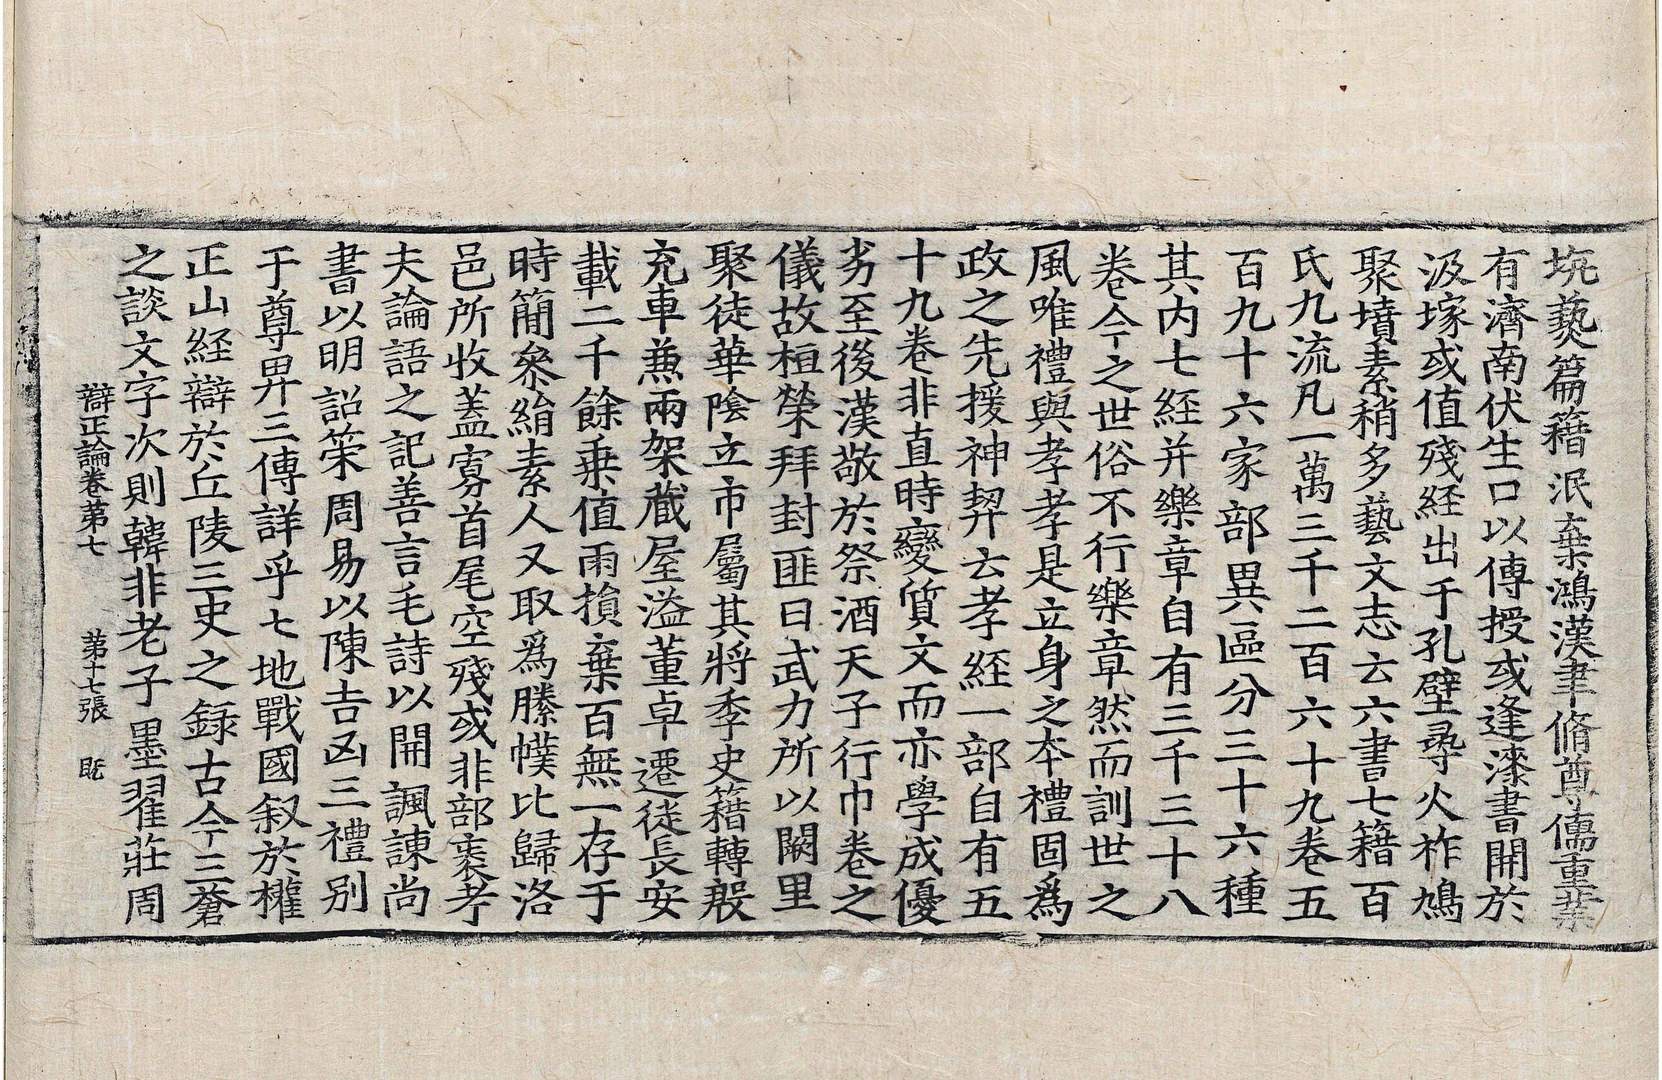 坑爇篇籍泯棄鴻漢聿脩尊儒重業
有濟南伏生口以傳授或逢漆書開於
汲塚或值殘経出于孔壁尋火祚鳩
聚墳素稍多藝文志云六書七籍百
氏九流凡一萬三千二百六十九卷五
百九十六家部異區分三十六種
其内七経并樂章自有三千三十八
卷今之世俗不行樂章然而訓世之
風唯禮與孝孝是立身之本禮固爲
政之先援神契云孝経一部自有五
十九卷非直時變質文而亦學成優
劣至後漢敬於祭酒天子行巾卷之
儀故桓榮拜封匪曰武力所以闕里
聚徒華陰立市屬其將季史籍轉殷
充車兼兩架蔵屋溢董卓遷徒長安
載二千餘乗值雨損棄百無一存于
時簡叅絹素人又取爲縢幞比歸洛
邑所收蓋寡首尾空殘或非部袠孝
夫論語之記善言毛詩以開諷諫尚
書以明詔策周易以陳吉凶三禮別
于尊畀三傳詳乎七地戰國叙於權
正山経辯於丘陵三史之録古今三蒼
之談文字次則韓非老子墨翟莊周
辯正論卷第七 第十七張 旣